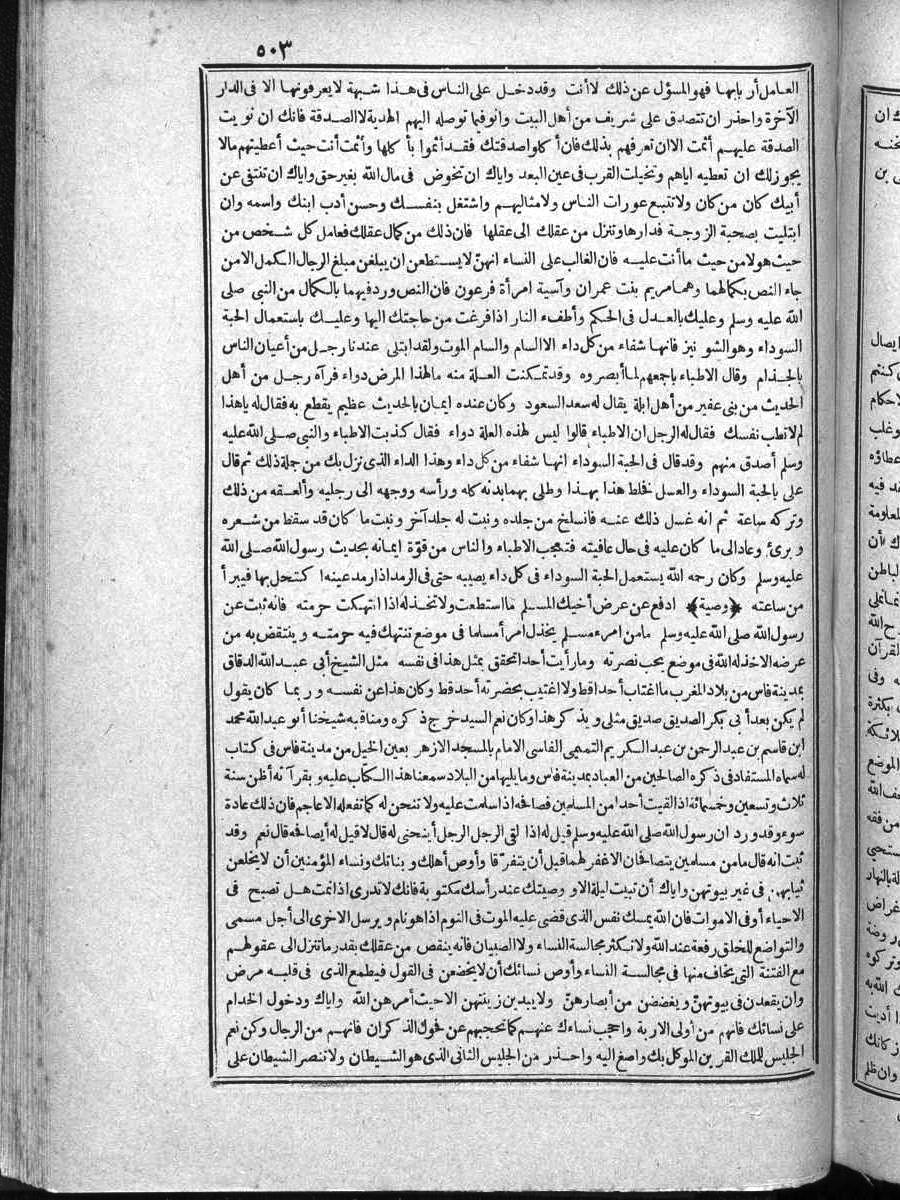 ٥٠٣
العامل أربابها فهو المسؤل عن ذلك لاأنت وقد دخل على الناس فى هذا شبهة لايعرفونها الا فى الدار
الآخرة واحذر ان تتصدق على شريف من أهل البيت وانوفيما توصله اليهم الهدية لا الصدقة فانك ان نويت
الصدقة عليهم أثمت الاان تعرفهم بذلك فان أكلوا صدقتك فقد أثموا بأكلها وأثمت أنت حيث أعطيتهم مالا
يجوز لك ان تعطيه اياهم وتخيلت القرب فى عين البعد واياك ان تخوض فى مال الله بغير حق واياك ان تنتفى عن
أبيك كان من كان ولا تتبع عورات الناس ولا مثالبهم واشتغل بنفسك وحسن أدب ابنك واسمه وان
ابتليت بصحبة الزوجة فدارها وتنزل من عقلك الى عقلها فان ذلك من كمال عقلك فعامل كل شخص من
حيث هو لا من حيث ما أنت عليه فان الغالب على النساء انهنّ لا يستطعن ان يبلغن مبلغ الرجال الكمل الامن
جاء النص بكمالهما وهما مريم بنت عمران وآسية امرأة فرعون فان النص ورد فيهما بالكمال من النبى صلى
الله عليه وسلم وعليك بالعدل فى الحكم وأطفىء النار اذا فرغت من حاجتك اليها وعليك باستعمال الحبة
السوداء وهو الشونيز فانها شفاء من كل داء الاالسام والسام الموت ولقد ابتلى عندنا رجل من أعيان الناس
بالجذام وقال الاطباء باجمعهم لما أبصروه وقد تمكنت العلة منه ما لهذا المرض دواء فرآه رجل من أهل
الحديث من بنى عفير من أهل ابلة يقال له سعد السعود وكان عنده ايمان بالحديث عظيم يقطع به فقال له ياهذا
لم لا تطب نفسك فقال له الرجل ان الاطباء قالوا ليس لهذه العلة دواء فقال كذبت الاطباء والنبى صلى الله عليه
وسلم أصدق منهم وقد قال فى الحبة السوداء انها شفاء من كل داء وهذا الداء الذى نزل بك من جملة ذلك ثم قال
على بالحبة السوداء والعسل فخلط هذا بهذا وطلى بهما بدنه كله ورأسه ووجهه الى رجليه وألعقه من ذلك
وتركه ساعة ثم انه غسل ذلك عنه فانسلخ من جلده ونبت له جلد آخر ونبت ما كان قد سقط من شعره
وبرئ وعاد الى ما كان عليه فى حال عافيته فتعجب الاطباء والناس من قوّة ايمانه بحديث رسول الله صلى الله
عليه وسلم وكان رحمه الله يستعمل الحبة السوداء فى كل داء يصيبه حتى فى الرمد اذا رمد عينه اكتحل بها فيبرأ
من ساعته ﴿وصية﴾ ادفع عن عرض أخيك المسلم ما استطعت ولا تخذله اذا انتهكت حرمته فانه ثبت عن
رسول الله صلى الله عليه وسلم مامن امرء مسلم يخذل امرأ مسلما فى موضع تنتهك فيه حرمته وينتقض به من
عرضه الاخذله الله فى موضع يحب نصرته ومارأيت أحدا تحقق بمثل هذا فى نفسه مثل الشيخ أبى عبد الله الدقاق
بمدينة فاس من بلاد المغرب ما اغتاب أحدا قط ولا اغتيب بحضرته أحد قط وكان هذا عن نفسه وربما كان يقول
لم يكن بعد أبى بكر الصديق صديق مثلى ويذكر هذا وكان نعم السيد خرج ذكره ومناقبه شيخنا أبو عبد الله محمد
ابن قاسم بن عبد الرحمن بن عبد الكريم التميمى الفاسى الامام بالمسجد الازهر بعين الخيل من مدينة فاس فى كتاب
له سماه المستفاد فى ذكره الصالحين من العباد بمدينة فاس ومايليها من البلاد سمعنا هذا الكتاب عليه وبقرآنه أظن سنة
ثلاث وتسعين وخمسمائة اذا لقيت أحدا من المسلمين فصافحه اذا سلمت عليه ولا تنحن له كما تفعله الاعاجم فان ذلك عادة
سوء وقد ورد ان رسول الله صلى الله عليه وسلم قيل له اذا لقى الرجل الرجل أينحنى له قال لا قيل له أيصافحه قال نعم وقد
ثبت انه قال مامن مسلمين يتصافحان الاغفر لهما قبل أن يتفرّقا وأوص أهلك وبناتك ونساء المؤمنين أن لا يخلعن
ثيابهن فى غير بيوتهن واياك أن تبيت ليلة الا ووصيتك عند رأسك مكتوبة فانك لا تدرى اذا نمت هل تصبح فى
الاحياء أو فى الاموات فان الله يمسك نفس الذى قضى عليه الموت فى النوم اذا هو نام ويرسل الاخرى الى أجل مسمى
والتواضع للخلق رفعة عند الله ولا تكثر مجالسة النساء ولا الصبيان فانه ينقص من عقلك بقدر ما تنزل الى عقولهم
مع الفتنة التى يخاف منها فى مجالسة النساء وأوص نسائك أن لا يخضعن فى القول فيطمع الذى فى قلبه مرض
وان يقعدن فى بيوتهنّ ويغضضن من أبصارهنّ ولا يبدين زينتهن الاحيث أمرهن الله واياك ودخول الخدام
على نسائك فانهم من أولى الاربة واحجب نساءك عنهم كما تحجبهم عن فحول الذكران فانهم من الرجال وكن نعم
الجليس للملك القرين الموكل بك واصغ اليه واحذر من الجليس الثانى الذى هو الشيطان ولا تنصر الشيطان على